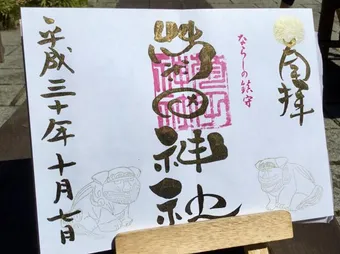 奉拝
ならしの鎮守
神社
平成三十年十月七日